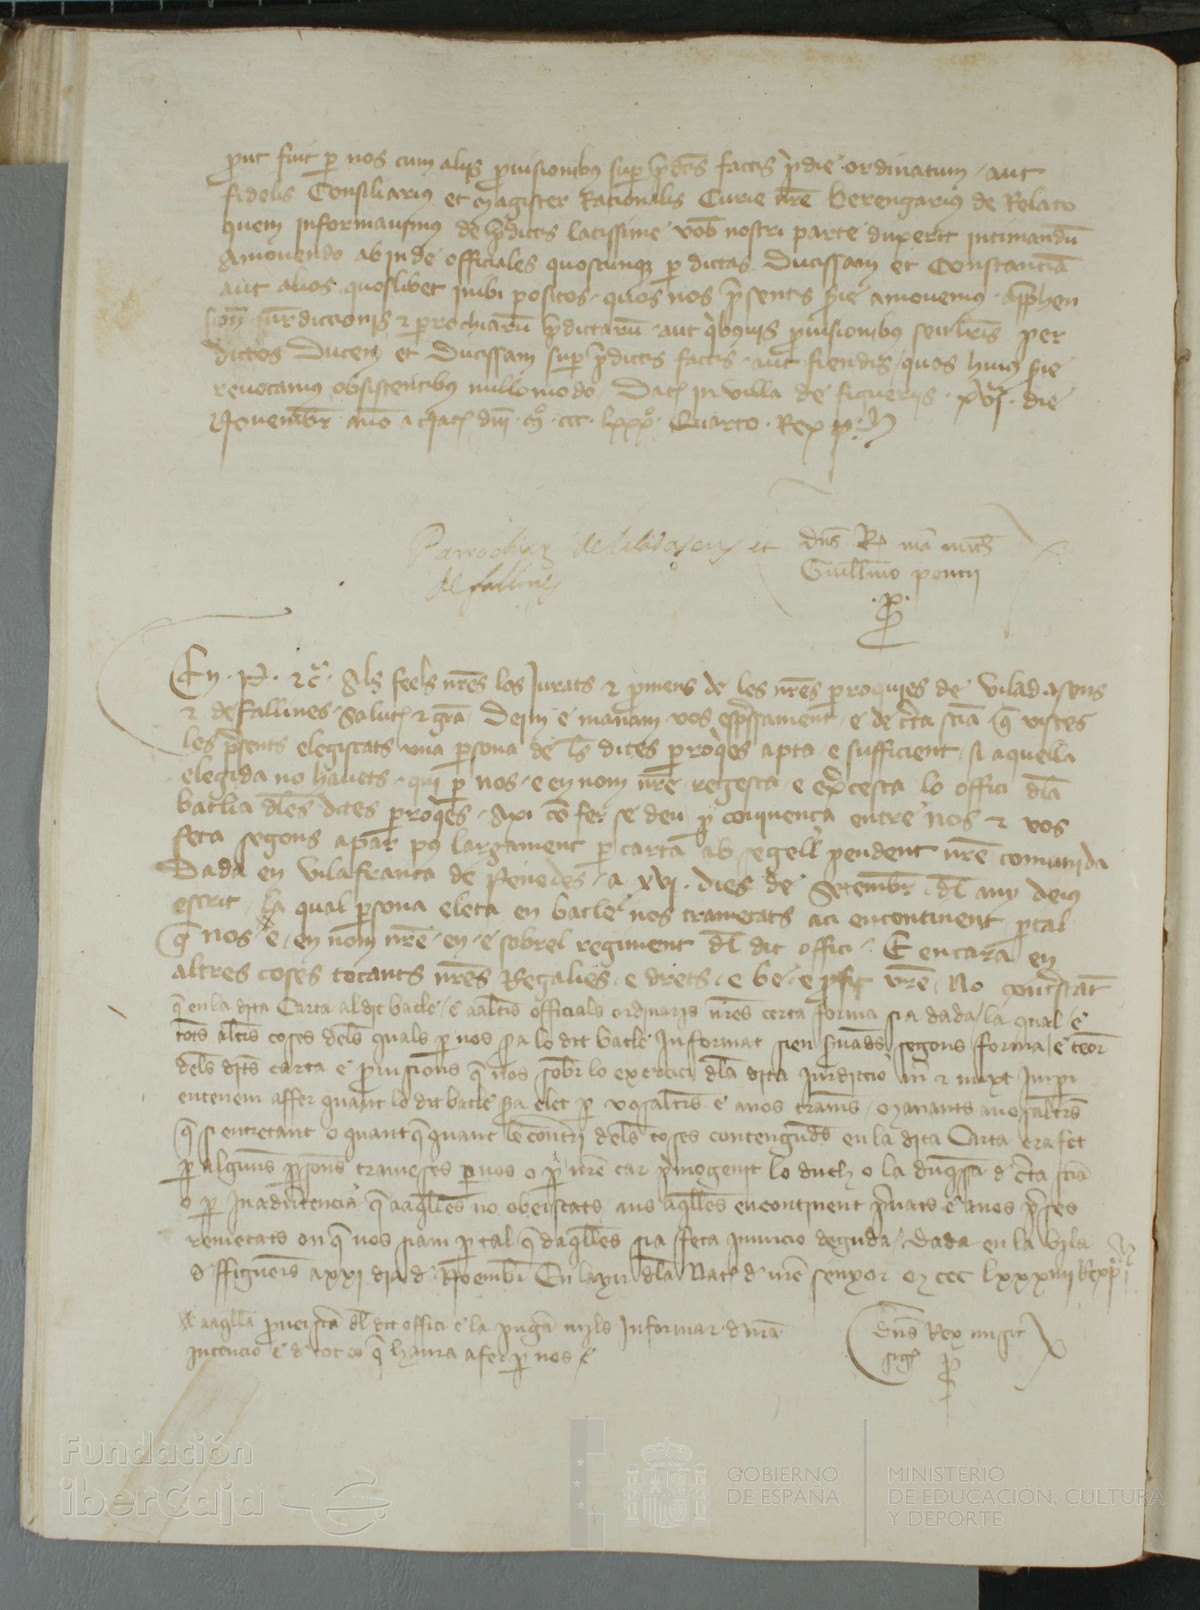 prout fuit p nos cum alijs prouisionibus sup p̱dc̄is factis p̱die ordinatum aut
fidelis Consiliarius et Magister Racionalis Curie nr̄e Berengarius de Relato
quem informauimus de p̱dictis latissime vob̄ nostri parte duxerit intimandū
Amouendo abinde officiales quoscunq̄ p dictas Ducissam et Constanciā
aut alios quoslibet inibi positos quos nos p̱sentis s̄ie amouemus
Jurdiccionis ⁊ parrochiarū p̱dictarū aut prouisionibus seu lr̄is per
dictos Ducem et Ducissam sup p̱dictis factis aut fiendis quas huius s̄ie
reuocamus obsistentibus nullomodo Dat in villa de figuerijs xvj die
Nouembr̄ año a Nat dnī mº ccc lxxxº Quarto Rex p
Parrochiar de Viladasens et
de fallines
Dn̄s Rex man
Guillmo poncij
p
En P ⁊c̄ Als feels nr̄es los Jurats ⁊ promens de les nr̄es parroquies de Viladasens
⁊ de fallines Salut ⁊ gr̄a Dejm e manam vos espressament e de c̄ta sciā q̄ vistes
les p̱sents elegiscats vna p̱sona de les dites parroq̄es apta e sufficient si aquella
elegida no hauets qui p nos e en nom nr̄e regesca e ex̄cesca lo offici dla
batlia dles dites parroq̄es Axi cō fer se deu p conuenca entre nos ⁊ vos
feta segons apar pus largament p carta ab segell pendent nr̄e comunida
Dada en Vilafranca de Penedes a xvj dies de Setembr̄ dl any deius
escrit la qual p̱sona eleta en batle nos trametats aci encontinent p̱tal
q̄ nos e en nom nr̄e en e sobrel regiment dl dit offici E encara en
altres coses tocants nr̄es Regalies e drets e be e p̱fit vr̄e No contrastāt
q̄ en la dita Carta al dit batle e aaltrs officials ordinaris nr̄es certa forma sia dada la qual e
tots altrs coses dels quals p nos sia lo dit batle Informat sien s̱uads segons forma e teor
dels dits carta e p̱uisions q̄ nos sobr̄ lo exercici dla dita Jurdiccio
entenem affer quant lo dit batle sia elet p vosaltrs e anos trames Manants auosaltrs
q̄ si entretant o quant q̄ quant le contr̄i dels coses contenguds en la dita Carta era fet
p alguns p̱sons trameses p nos o p nr̄e car p̱mogenit lo duch o la duq̄ssa d c̄ta sciā
o p Inadūtencia q̄ aaq̄lles no obeiscats ans aq̄lles encontinent e anos p̱ses
remetats on q̄ nos siam p tal q̄ daq̄lles sia feta punicio deguda Dada en la vila
d ffiguers a xxj dia d Noembr̄ En lany dla Nat d nr̄e senyor M ccc lxxxiiij Rex p
Informar d nr̄a
Intencio e d tot ço q̄ haura afer p nos
Dn̄s Rex misit
sig
p
Fundación
iberCaja
GOBIERNO
DE ESPAÑA
MINISTERIO
DE EDUCACIÓN, CULTURA
Y DEPORTE